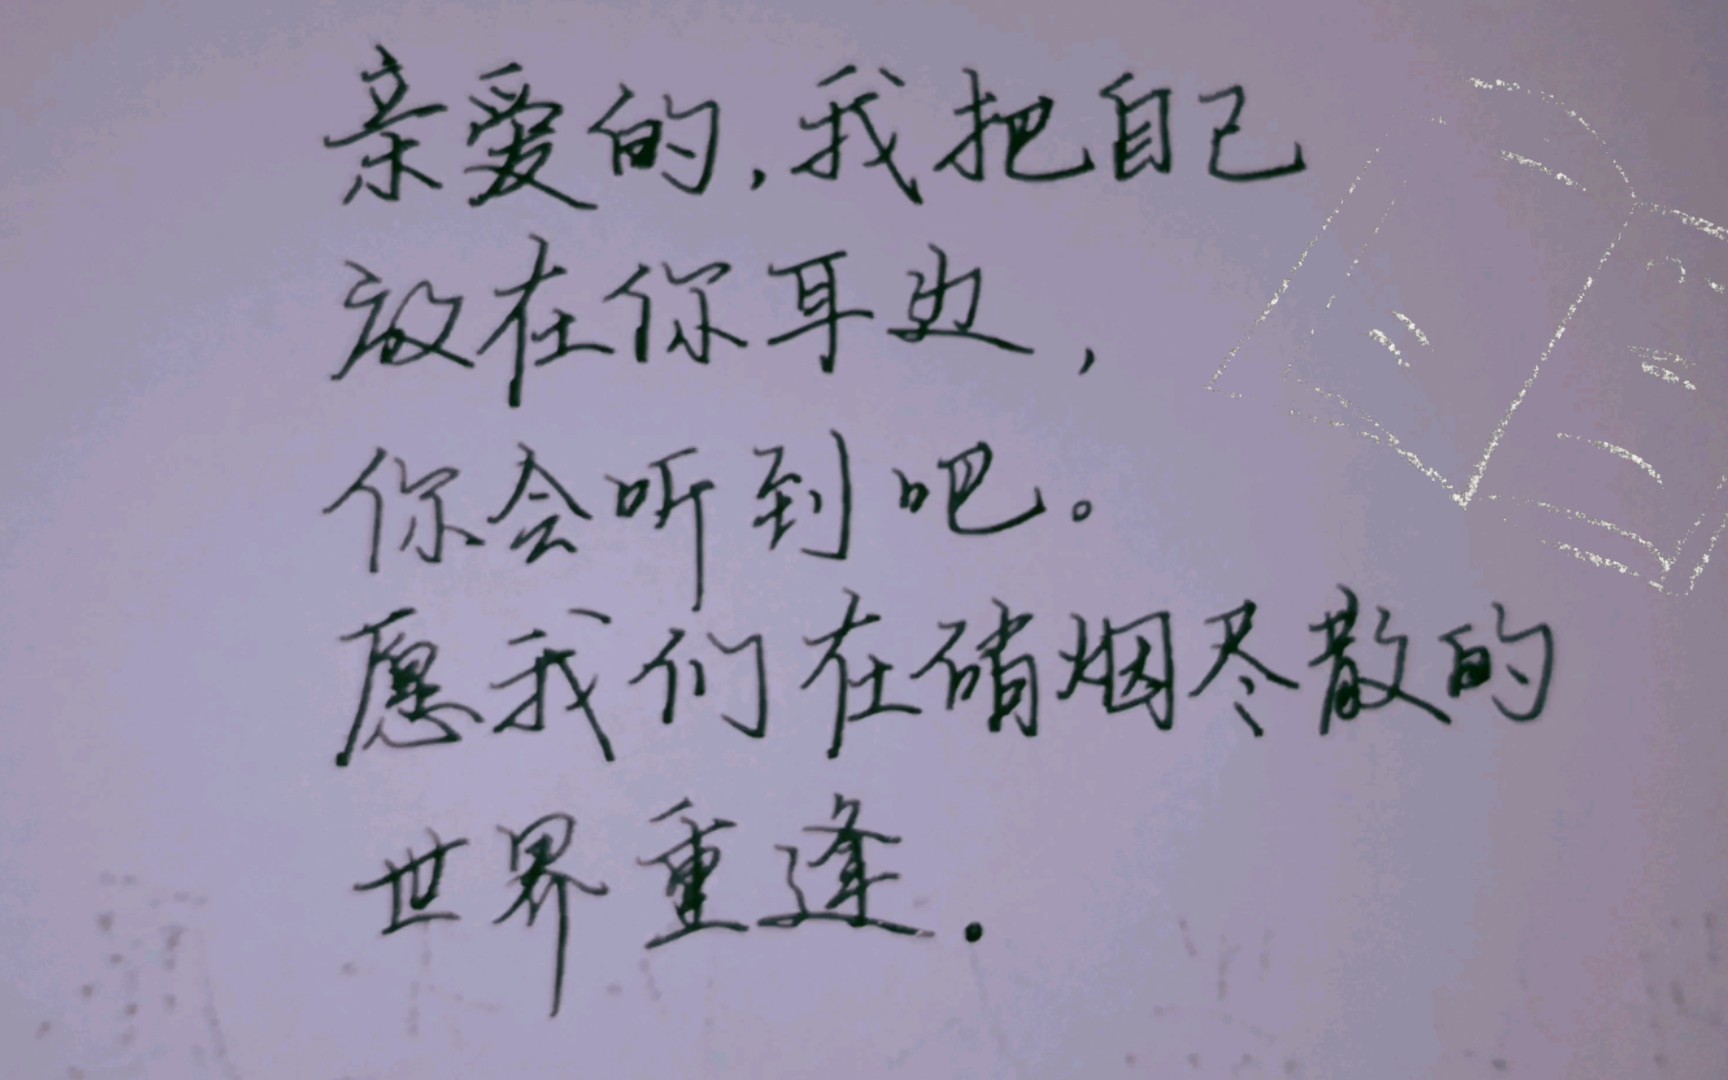 亲爱的,我把自己
放在你耳边,
你会听到吧。
愿我们在硝烟尽散的
世界重逢.